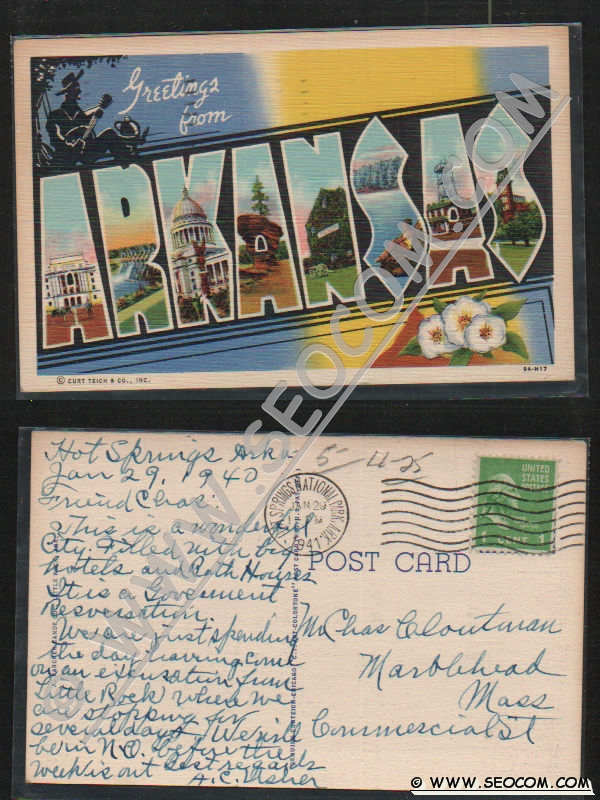 Greetings
from
ARKANSAS
© CURT TEICH & CO., INC.
9A-H17
WWW.SEOCOM.COM
Hot Springs Ark
Jan 29, 1940
Friend Chas:
This is a wonderful
City filled with big
hotels and Bath Houses
It is a Government
Reservation.
We are just spending
the day having come
on an excursion from
Little Rock where we
stopping for
several days. We will
be in N.O. before the
week is out best regards
A.C.
HOT SPRINGS NATIONAL PARK, ARK.
JAN 29
PM
1941
UNITED
STATES
POSTAGE
1 CENT 1
POST CARD
Mr Chas Cloutman
Marblehead
Mass
Commercial St
© WWW.SEOCOM.COM